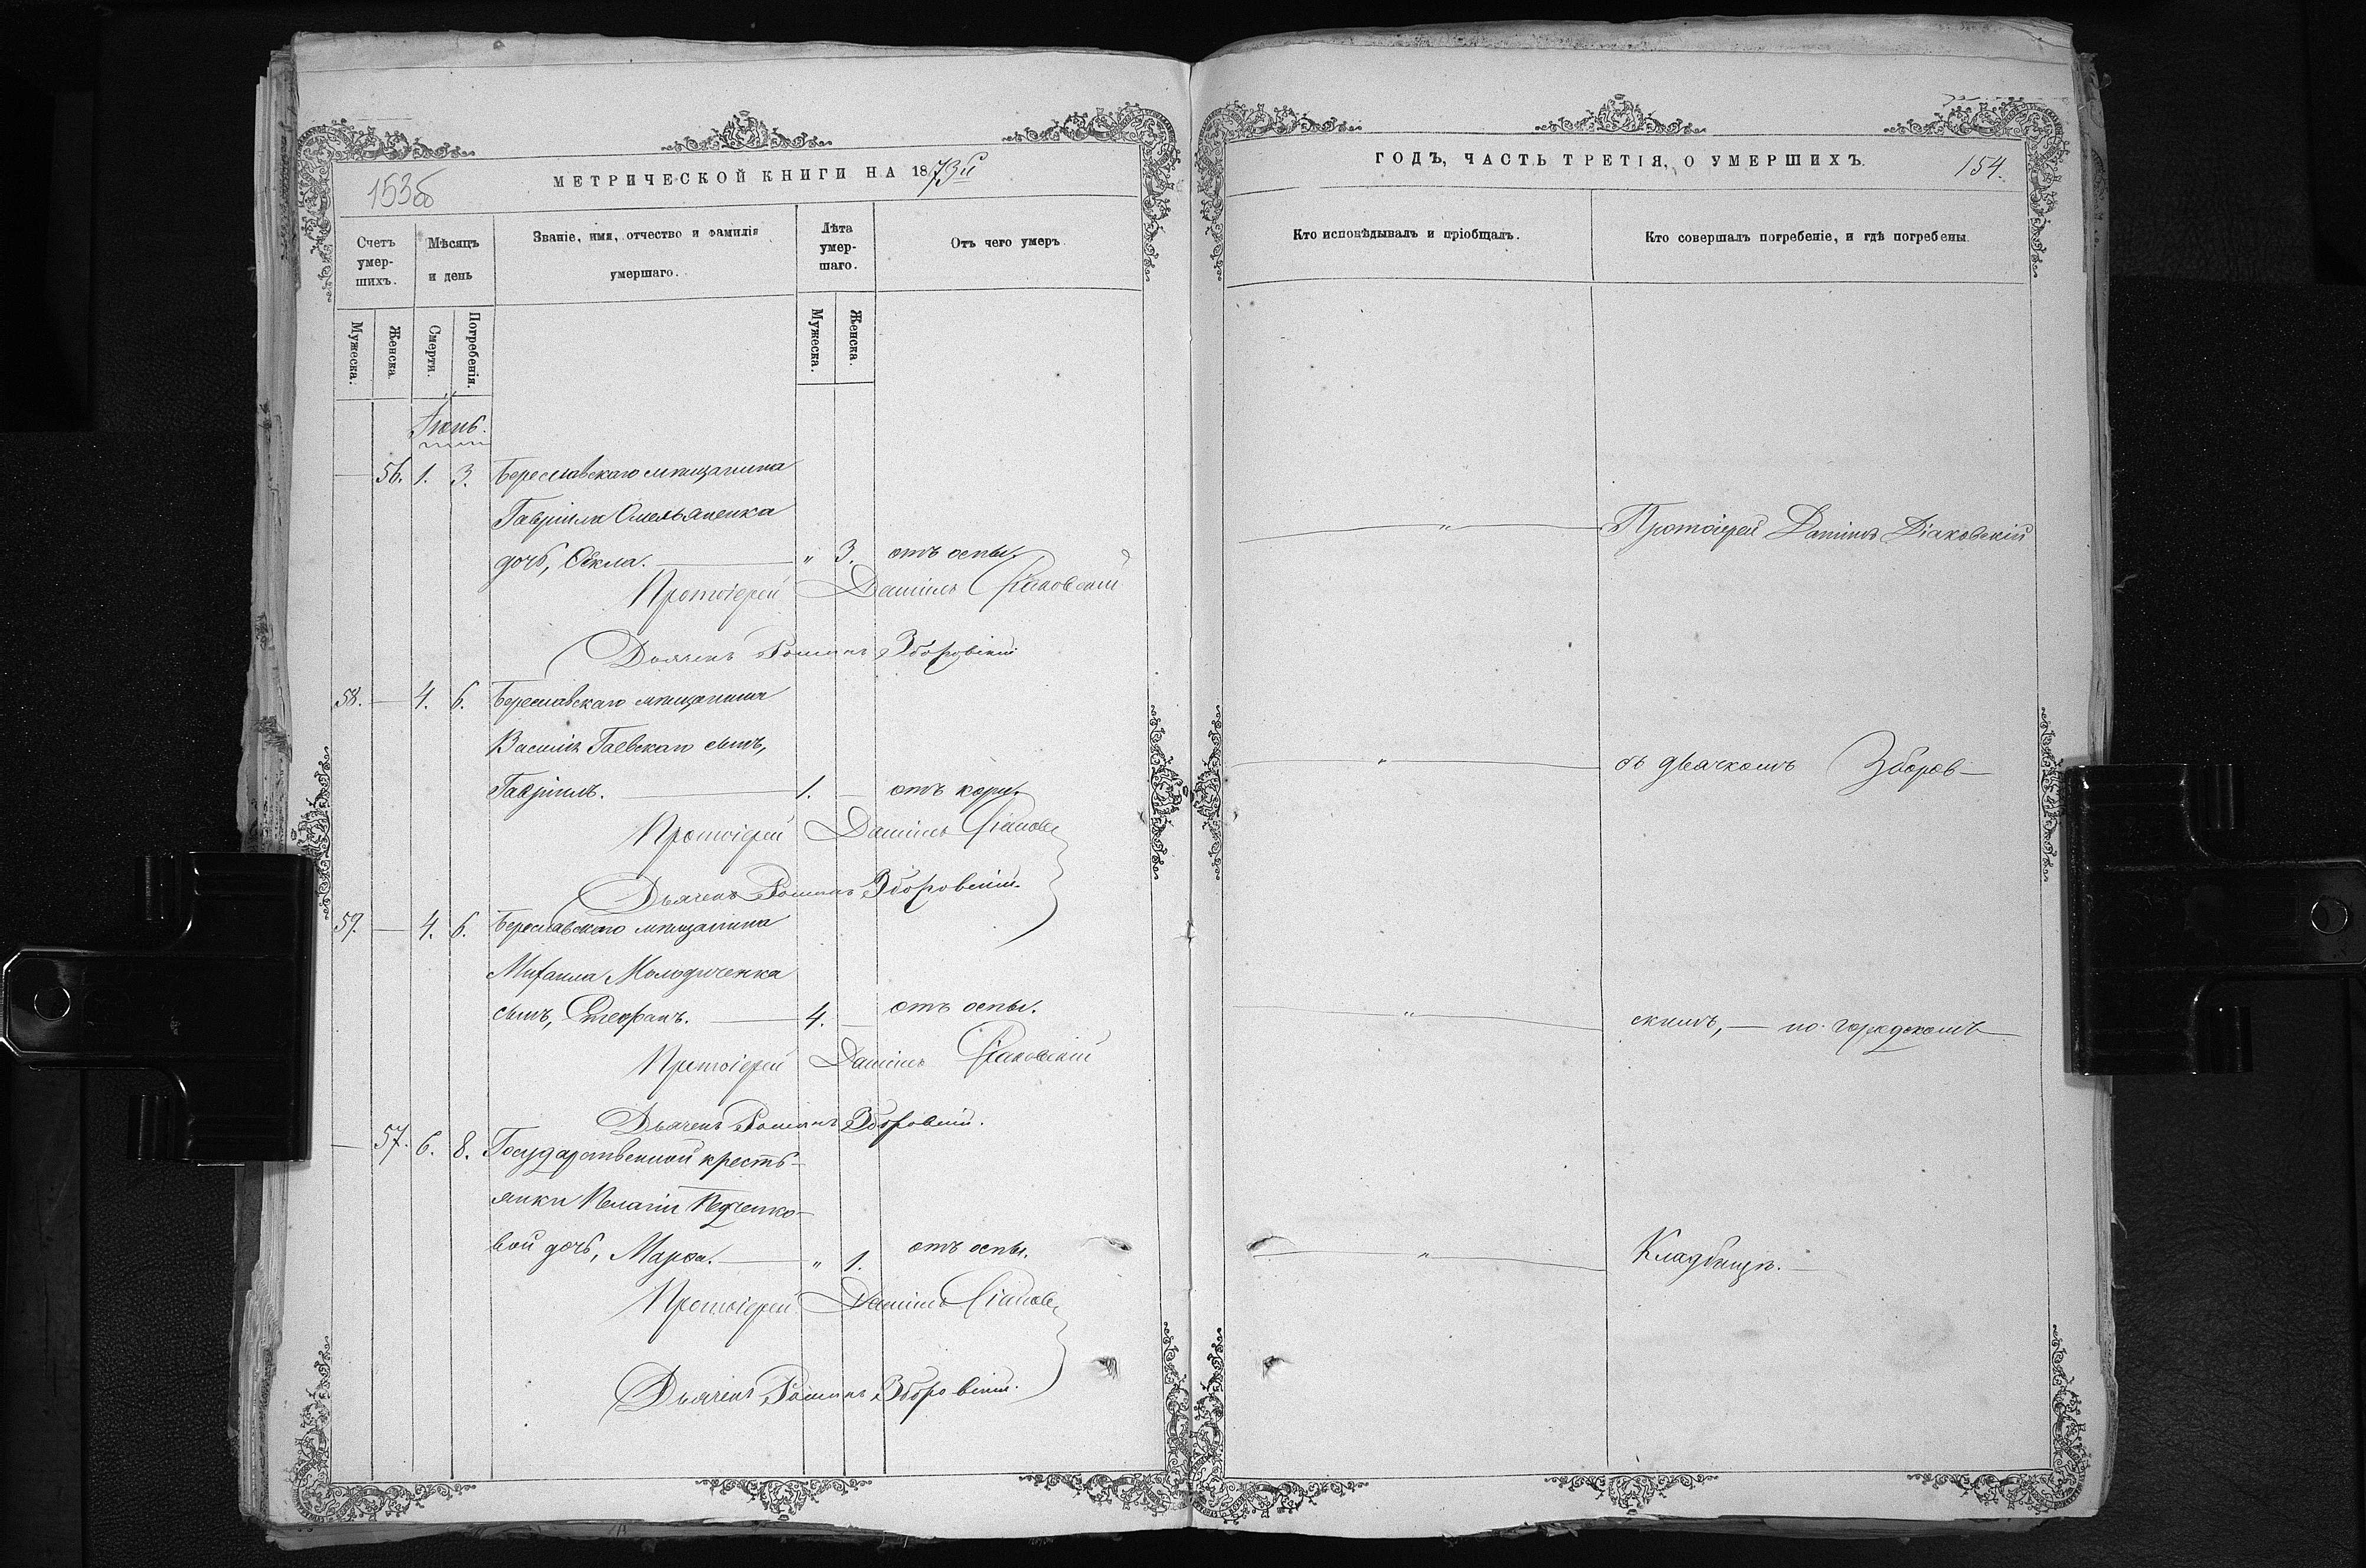 МЕТРИЧЕСКОЙ КНИГИ НА 1873й
153об
Счетъ умер-шихъ.
Мѣсяцъ и день
Званіе, имя, отчество и фамилія умершаго.
Лѣта умер-шаго.
Отъ чего умеръ
Мужеска.
Женска
Смерти.
Погребенія.
Мужеска.
Женска.
Іюнь.
— 56. 1. 3. Береславскаго мѣщанина
Гавріила Омельяненка
дочь, Ѳекла. — " 3. отъ оспы.
Протоіерей Даніилъ Діаковскій
Дьячекъ Романъ Зборовскій
58. — 4. 6. Береславскаго мѣщанина
Василія Гаевскаго сынъ,
Гавріилъ. — 1. — отъ кори.
Протоіерей Даніилъ Діаковс
Дьячекъ Романъ Зборовскій.
59. — 4. 6. Береславскаго мѣщанина
Михаила Молодиченка
сынъ, Стефанъ. — 4. — отъ оспы.
Протоіерей Даніилъ Діаковскій
Дьячекъ Романъ Зборовскій.
— 57. 6. 8. Государственной кресть-
янки Пелагіи
вой дочь, Марфа. — " 1. отъ оспы.
Протоіерей Даніилъ Діаковс
Дьячекъ Романъ Зборовскій.
ГОДЪ, ЧАСТЬ ТРЕТІЯ, О УМЕРШИХЪ.
154.
Кто исповѣдывалъ и пріобщалъ.
Кто совершалъ погребеніе, и гдѣ погребены.
— " — Протоіерей Даніилъ Діаковскій
— " — съ дьячкомъ Зборов-
— " — скимъ, — на городскомъ
— " — Кладбищѣ. —